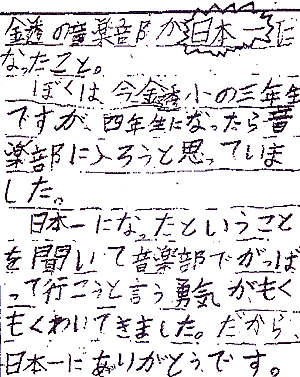 金透の音楽部が日本一に
なったこと。
ぼくは今金透小の三年生
ですが、四年生になったら音
楽部に入ろうと思っていま
した。
日本一になったということ
を聞いて音楽部でがっば
って行こうと言う勇気がもく
もくわいてきました。だから
日本一にありがとうです。